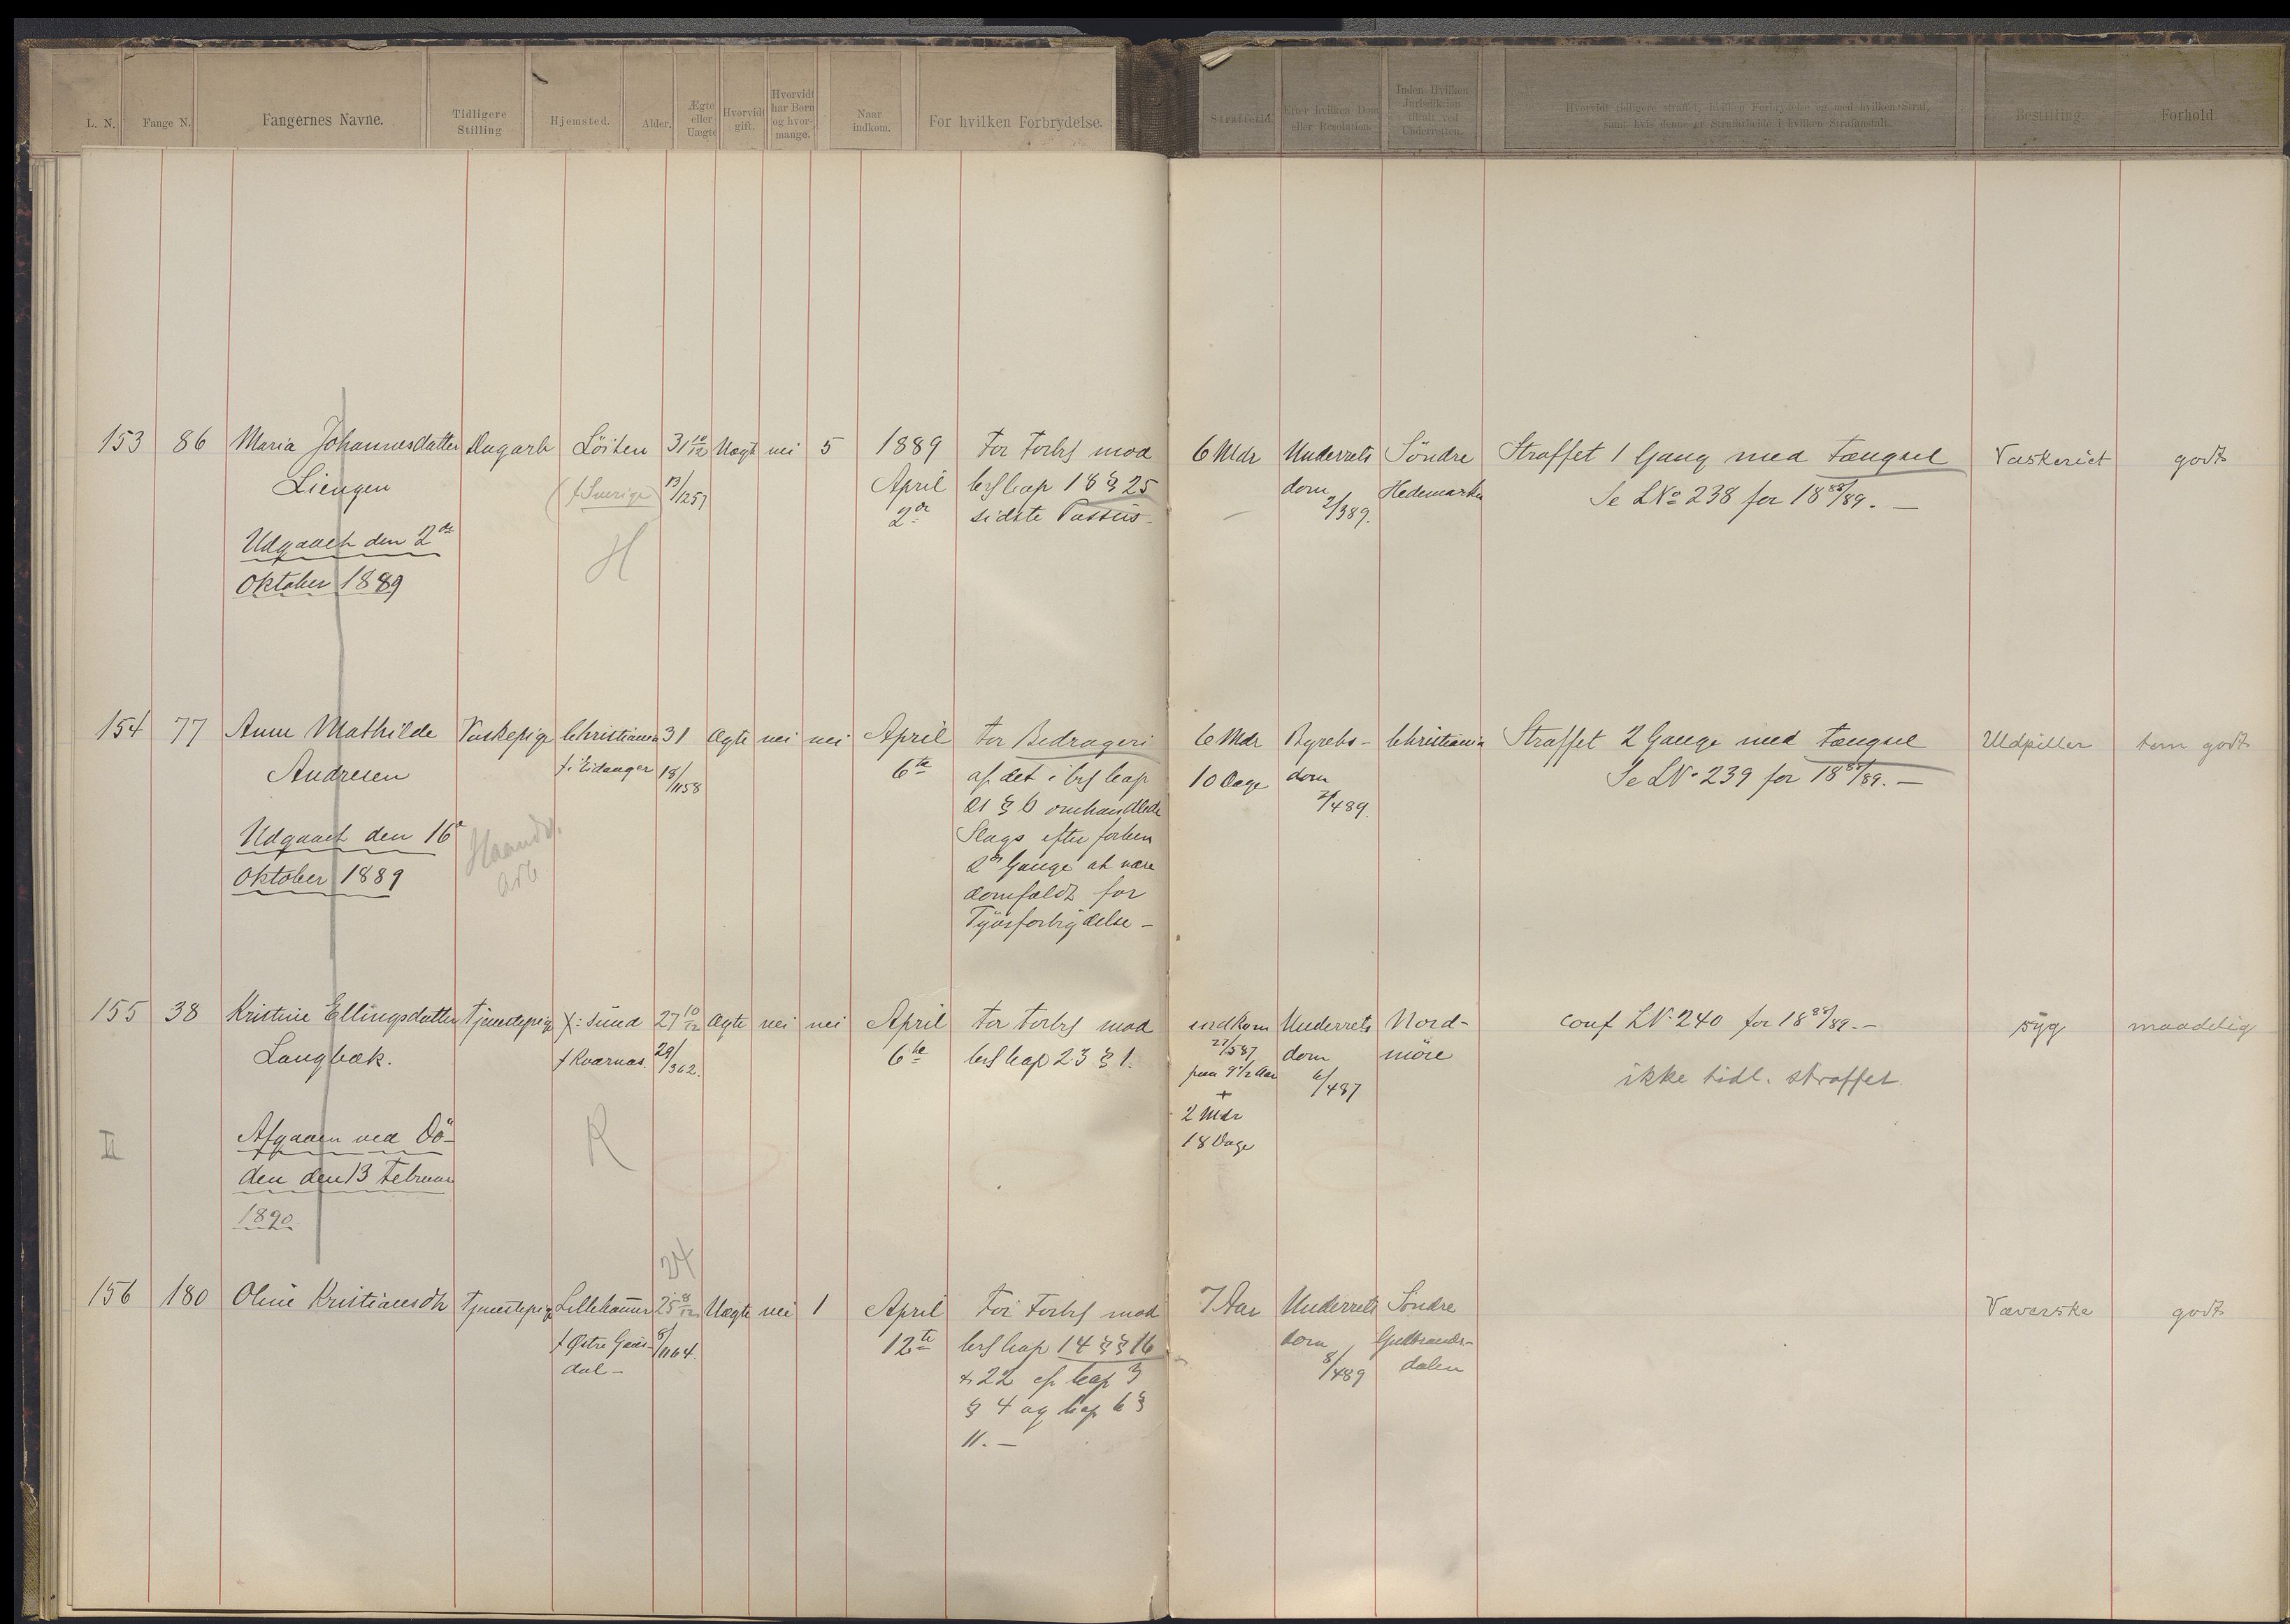 L. N.
Fange N.
Fangernes Navne.
Tidligere
Stilling
Hjemsted.
Alder.
Ægte
eller
Uægte
Hvorvidt
gift.
Hvorvidt
har Børn
og hvor-
mange.
Naar
indkom.
For hvilken Forbrydelse.
Straffetid.
Efter hvilken Dom
eller Resolution.
Inden Hvilken
Jurisdiktion
tiltalt ved
Underretten.
Hvorvidt tidligere straffet, hvilken Forbrydelse og med hvilken Straf,
samt hvis denne er Strafarbeide i hvilken Strafanstalt.
Bestilling
Forhold
153 86 Maria Johannesdatter Dagarb Löiten 31 10/12 Uægt nei 5 1889 For Forbr mod 6 Mdr Underrets Söndre Straffet 1 Gang med Fængsel Vaskeriet godt
Liengen (f Sverige) 13/1257 April Crl Cap 18 § 25 dom Hedemarken Se LNo 238 for 18 88/89. —
2de sidste Passus 2/389.
Udgaaet den 2de H
Oktober 1889
154 77 Anne Mathilde Vaskepige Christiania 31 Ægte nei nei April For Bedrageri 6 Mdr Byrets- Christiania Straffet 2 Gange med Fængsel Udpiller tem godt
Andresen f i Eidanger 18/1158 6te af det i Crl Cap 10 Dage dom Se LN. 239 for 18 88/89. —
21 § 6 omhandlede 2/489.
Udgaaet den 16de Haandv. Slags efter forhen
Oktober 1889 arb 2de Gange at være
domfældt for
Tyvsforbrydelse —
155 38 Kristine Ellingsdatter Tjenestepige X:sund 27 10/12 Ægte nei nei April For Forbr mod indkom Underrets Nord- conf LN. 240 for 18 88/89. — syg maadelig
Langbæk. f Kværnæs. 29/362. 6te Crl Cap 23 § 1. 27/587 dom möre
paa 9 1/2 Aar 6/487 ikke tidl. straffet
+
2 Mdr
II Afgaaen ved Dö- R 18 Dage
den den 13 Februar
1890
24
156 180 Oline Kristiansdtr Tjenestepige Lillehammer 25 8/12 Uægte nei 1 April For Forbr mod 7 Aar Underrets Söndre Væverske godt
f Østre Gaus- 8/1164. 12te Crl Cap 14 §§ 16 dom Gulbrands-
dal — & 22 cfr Cap 3 8/489 dalen
§ 4 og Cap 6 §
11. —